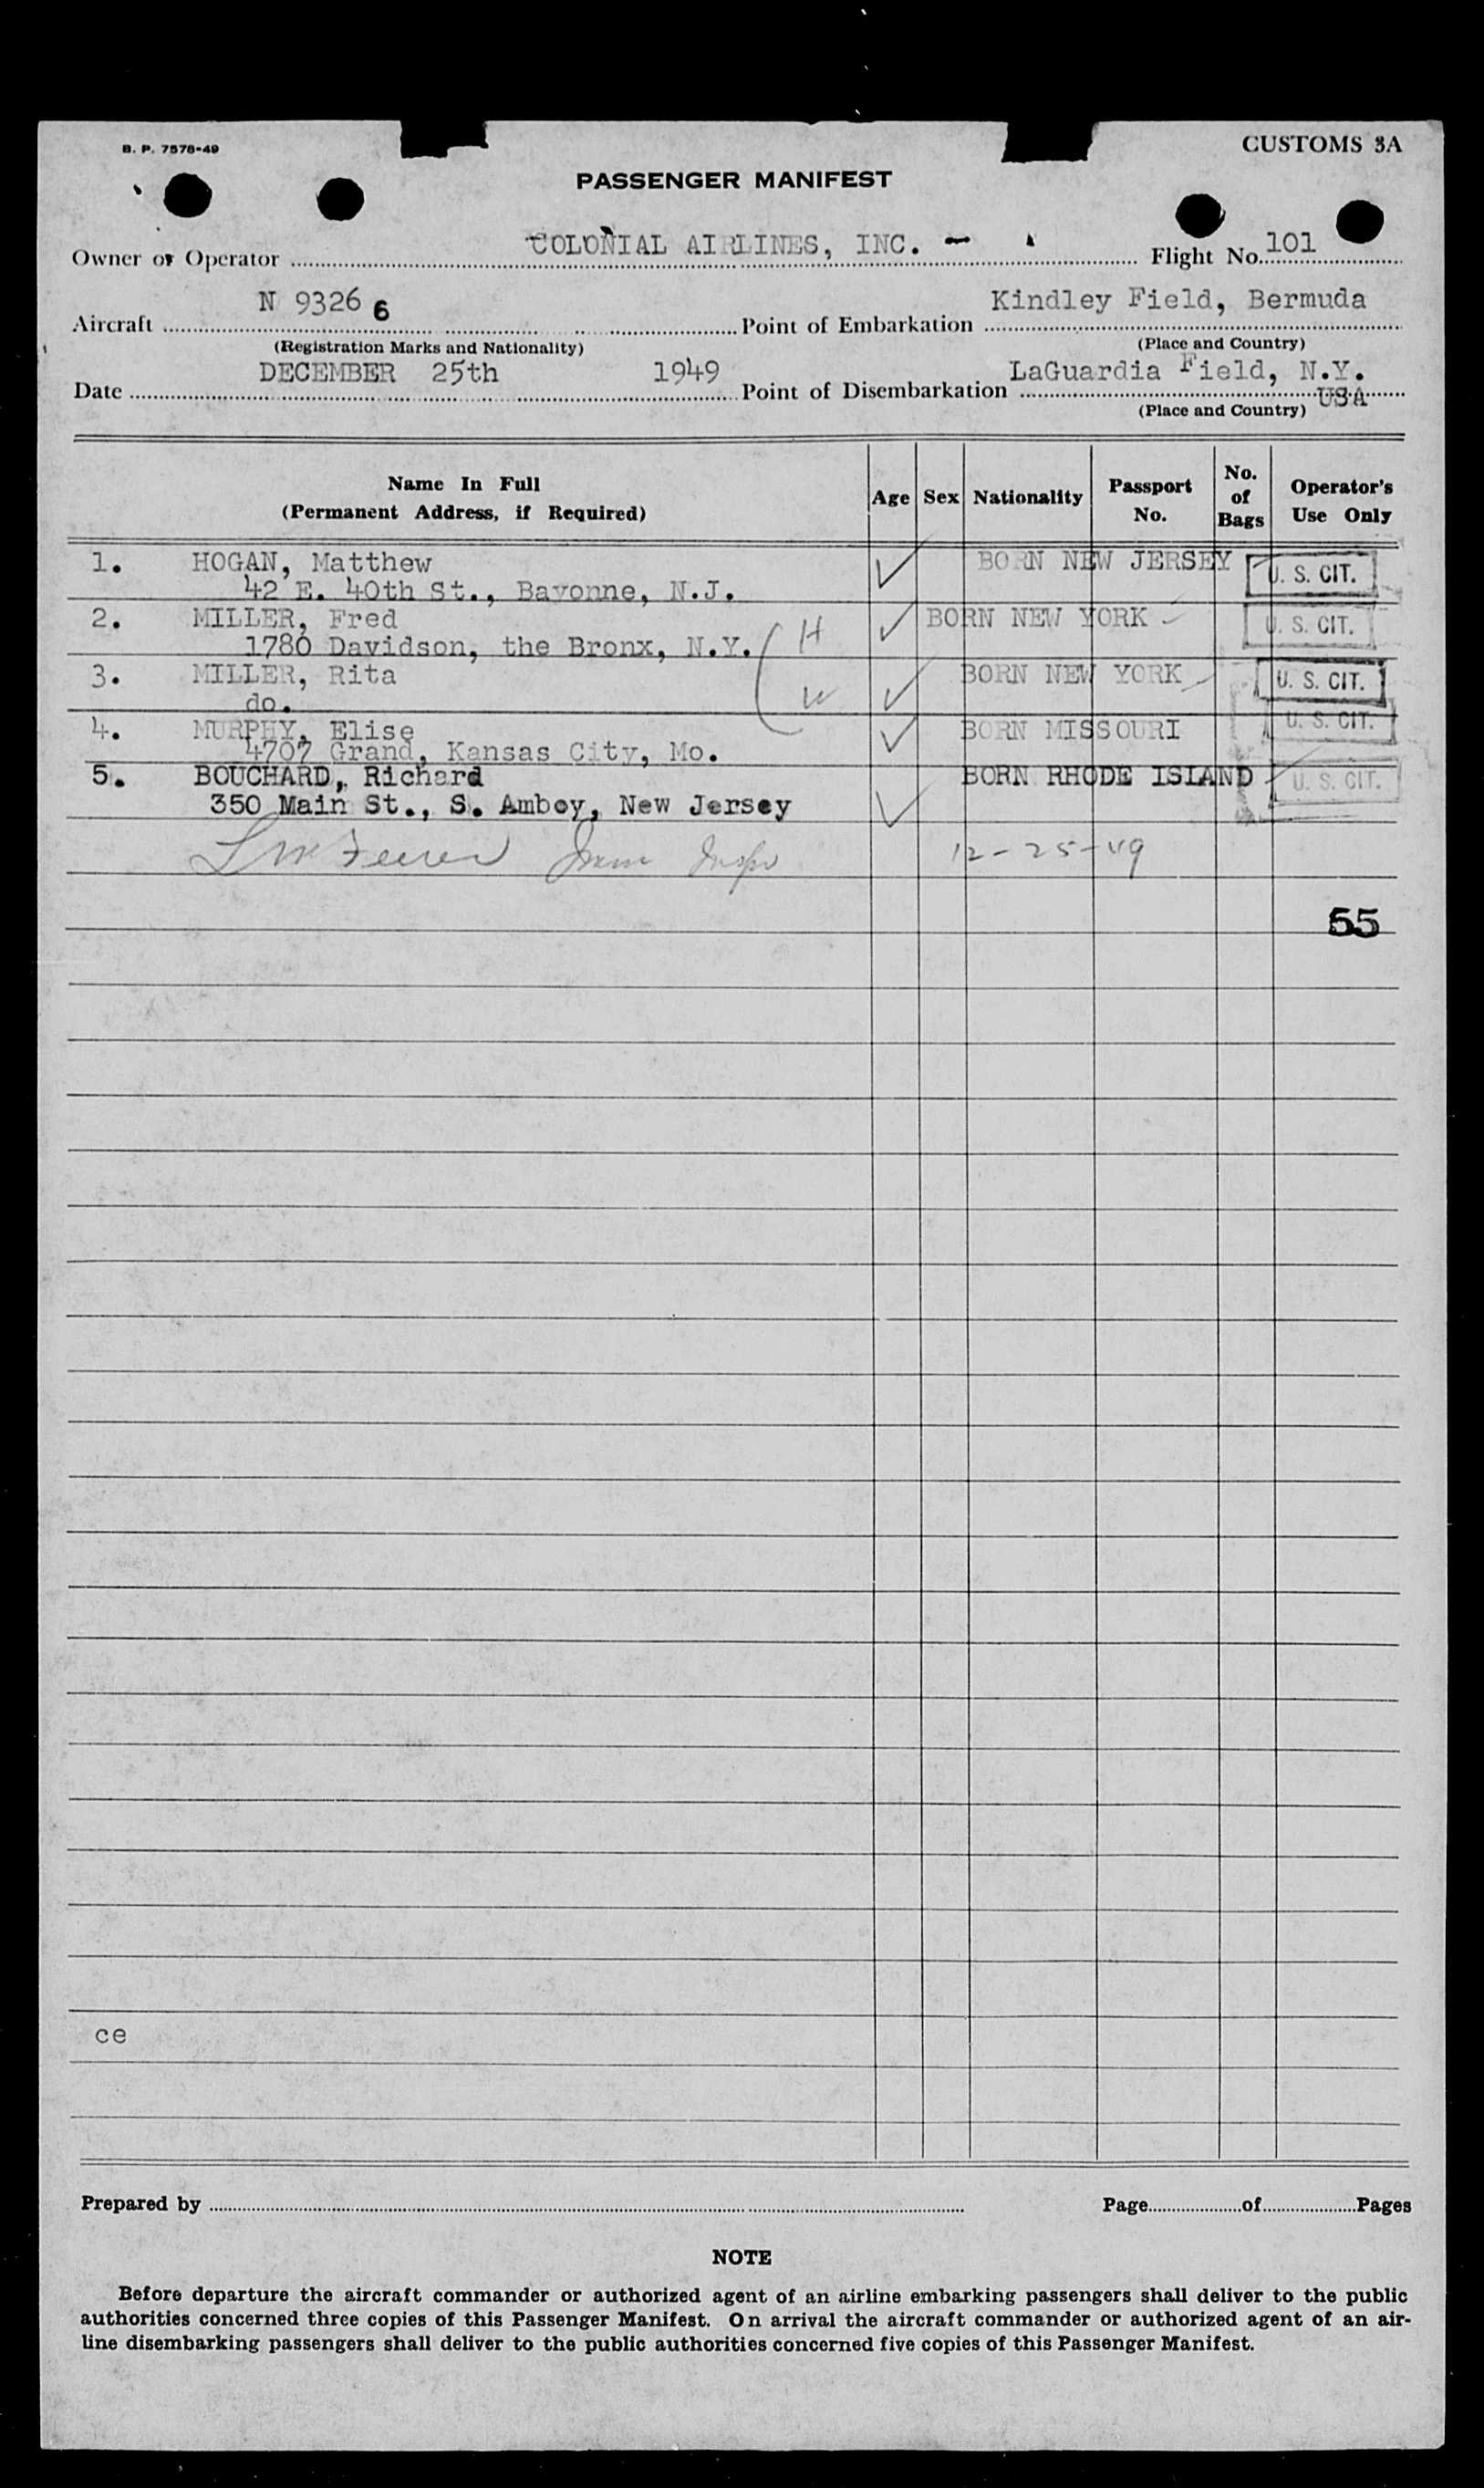 B. P. 7578-49
CUSTOMS 3A
PASSENGER MANIFEST
Owner or Operator COLONIAL AIRLINES, INC. - Flight No. 101
Aircraft N 93266 Point of Embarkation Kindley Field, Bermuda
(Registration Marks and Nationality) (Place and Country)
Date DECEMBER 25th 1949 Point of Disembarkation LaGuardia Field, N.Y.
(Place and Country) USA
Name In Full (Permanent Address, if Required) Age Sex Nationality Passport No. No. of Bags Operator's Use Only
1. HOGAN, Matthew ✓ BORN NEW JERSEY U. S. CIT.
42 E. 40th St., Bayonne, N.J.
2. MILLER, Fred H ✓ BORN NEW YORK U. S. CIT.
1780 Davidson, the Bronx, N.Y.
3. MILLER, Rita W ✓ BORN NEW YORK U. S. CIT.
do.
4. MURPHY, Elise ✓ BORN MISSOURI U. S. CIT.
4707 Grand, Kansas City, Mo.
5. BOUCHARD, Richard BORN RHODE ISLAND U. S. CIT.
350 Main St., S. Amboy, New Jersey ✓
12-25-49
55
ce
Prepared by Page of Pages
NOTE
Before departure the aircraft commander or authorized agent of an airline embarking passengers shall deliver to the public
authorities concerned three copies of this Passenger Manifest. On arrival the aircraft commander or authorized agent of an air-
line disembarking passengers shall deliver to the public authorities concerned five copies of this Passenger Manifest.